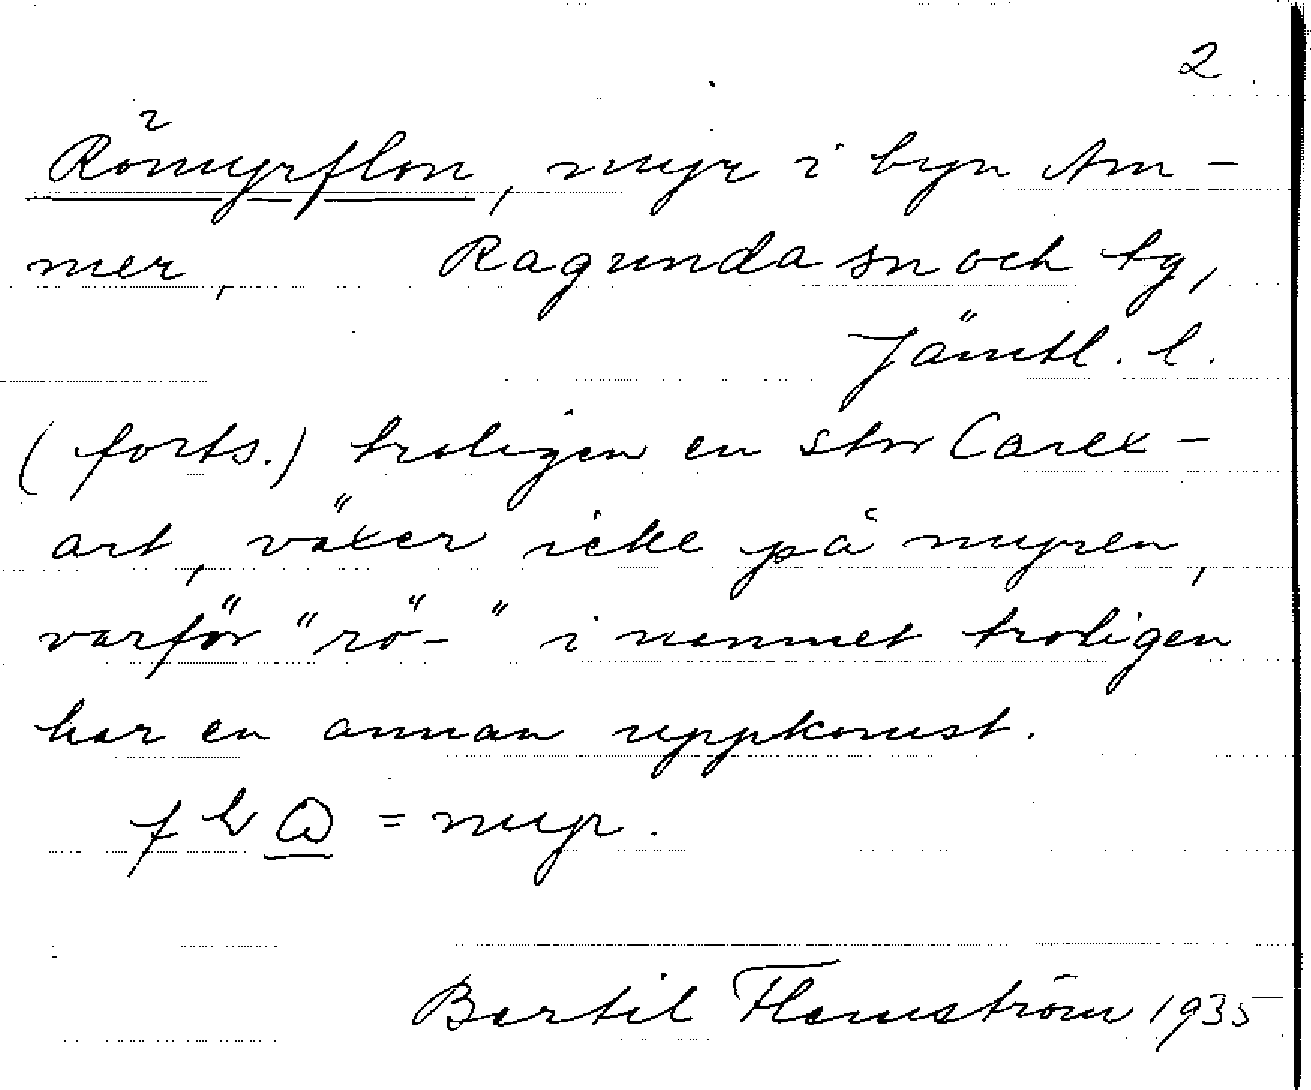 2.
Römyrflon, myr i byn Am-
mer, Ragunda sn och tg,
Jämtl. l.
(forts.) troligen en stor Carex-
art, växer icke på myren,
varför "rö-" i namnet troligen
har en annan uppkomst.
= myr.
Bertil Flemström 1935